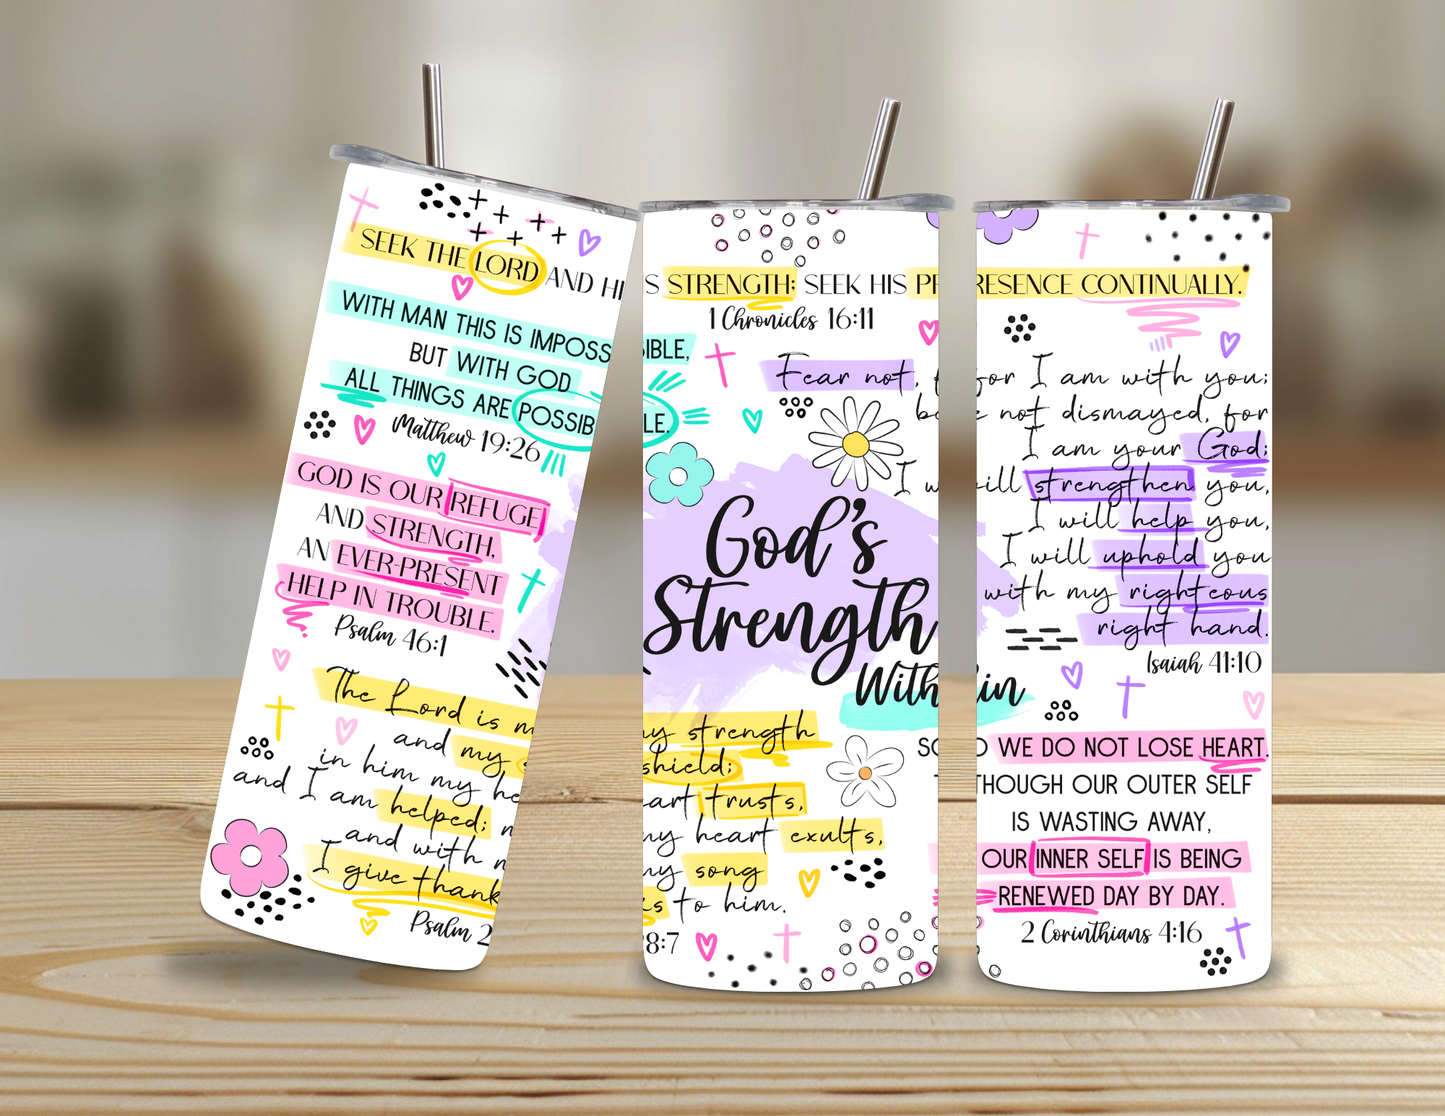 SEEK THE LORD AND HI
WITH MAN THIS IS IMPOSS
BUT WITH GOD
ALL THINGS ARE POSSIB
Matthew 19:26
GOD IS OUR REFUGE
AND STRENGTH,
AN EVER-PRESENT
HELP IN TROUBLE.
Psalm 46:1
The Lord is m
and my
in him my he
and I am helped;
and with m
I give thank
Psalm 2
S STRENGTH; SEEK HIS PR
1 Chronicles 16:11
IBLE,
LE.
Fear not,
I w
God's
Strength
With
my strength
shield;
eart trusts,
my heart exults,
my song
ks to him.
28:7
RESENCE CONTINUALLY.
for I am with you;
not dismayed, for
I am your God;
will strengthen you,
I will help you,
I will uphold you
with my righteous
right hand.
Isaiah 41:10
in
WE DO NOT LOSE HEART.
THOUGH OUR OUTER SELF
IS WASTING AWAY,
OUR INNER SELF IS BEING
RENEWED DAY BY DAY.
2 Corinthians 4:16